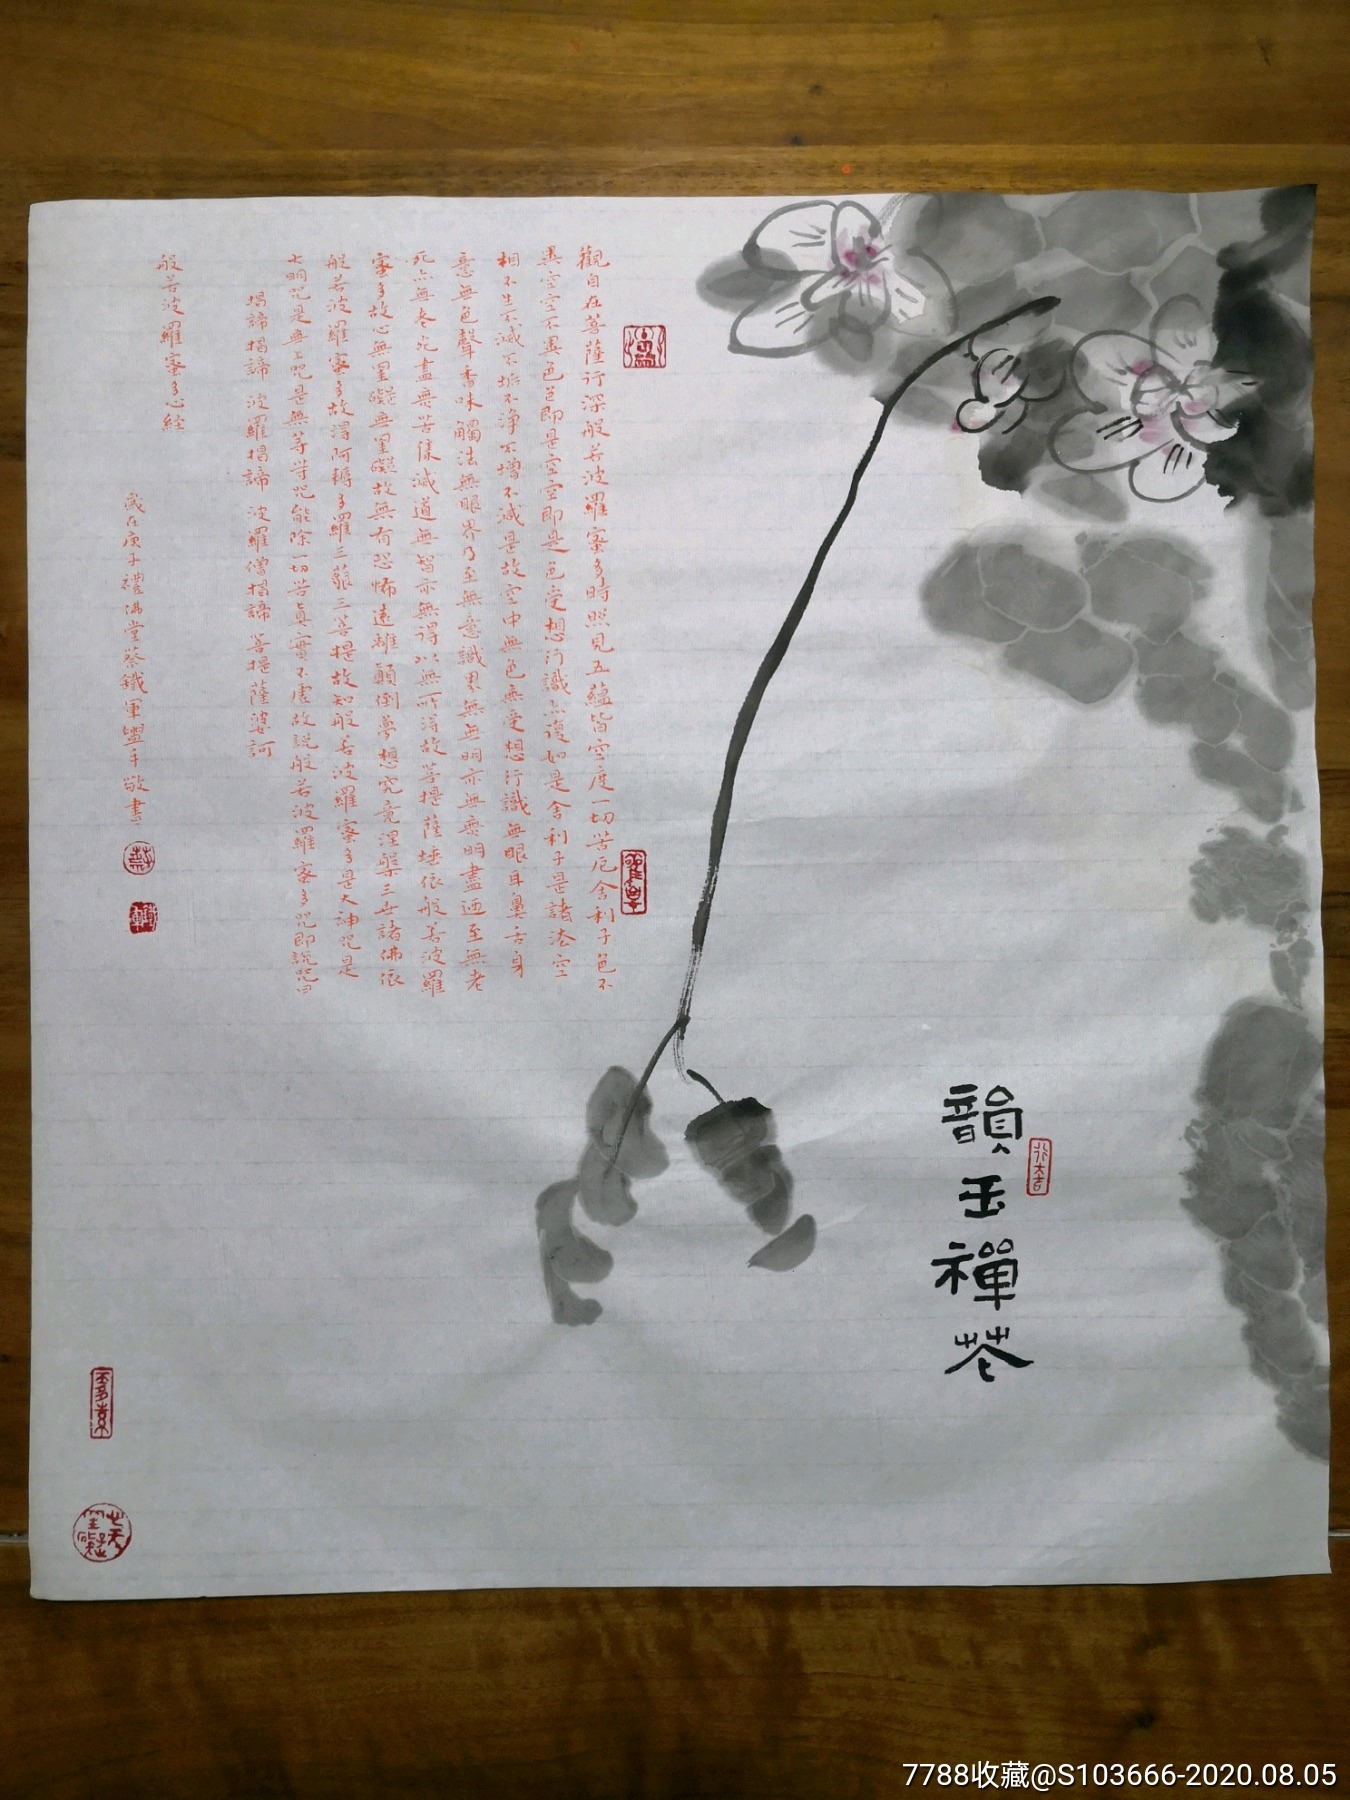 韻玉禪花
觀自在菩薩行深般若波羅蜜多時照見五蘊皆空度一切苦厄舍利子色不
異空空不異色色即是空空即是色受想行識亦復如是舍利子是諸法空
相不生不滅不垢不淨不增不減是故空中無色無受想行識無眼耳鼻舌身
意無色聲香味觸法無眼界乃至無意識界無無明亦無無明盡乃至無老
死亦無老死盡無苦集滅道無智亦無得以無所得故菩提薩埵依般若波羅
蜜多故心無罣礙無罣礙故無有恐怖遠離顛倒夢想究竟涅槃三世諸佛依
般若波羅蜜多故得阿耨多羅三藐三菩提故知般若波羅蜜多是大神咒是
大明咒是無上咒是無等等咒能除一切苦真實不虛故說般若波羅蜜多咒即說咒曰
揭諦揭諦 波羅揭諦 波羅僧揭諦 菩提薩婆訶
般若波羅蜜多心経
歲在庚子禮佛堂蔡鐵軍盥手敬書
大吉
7788收藏@S103666-2020.08.05